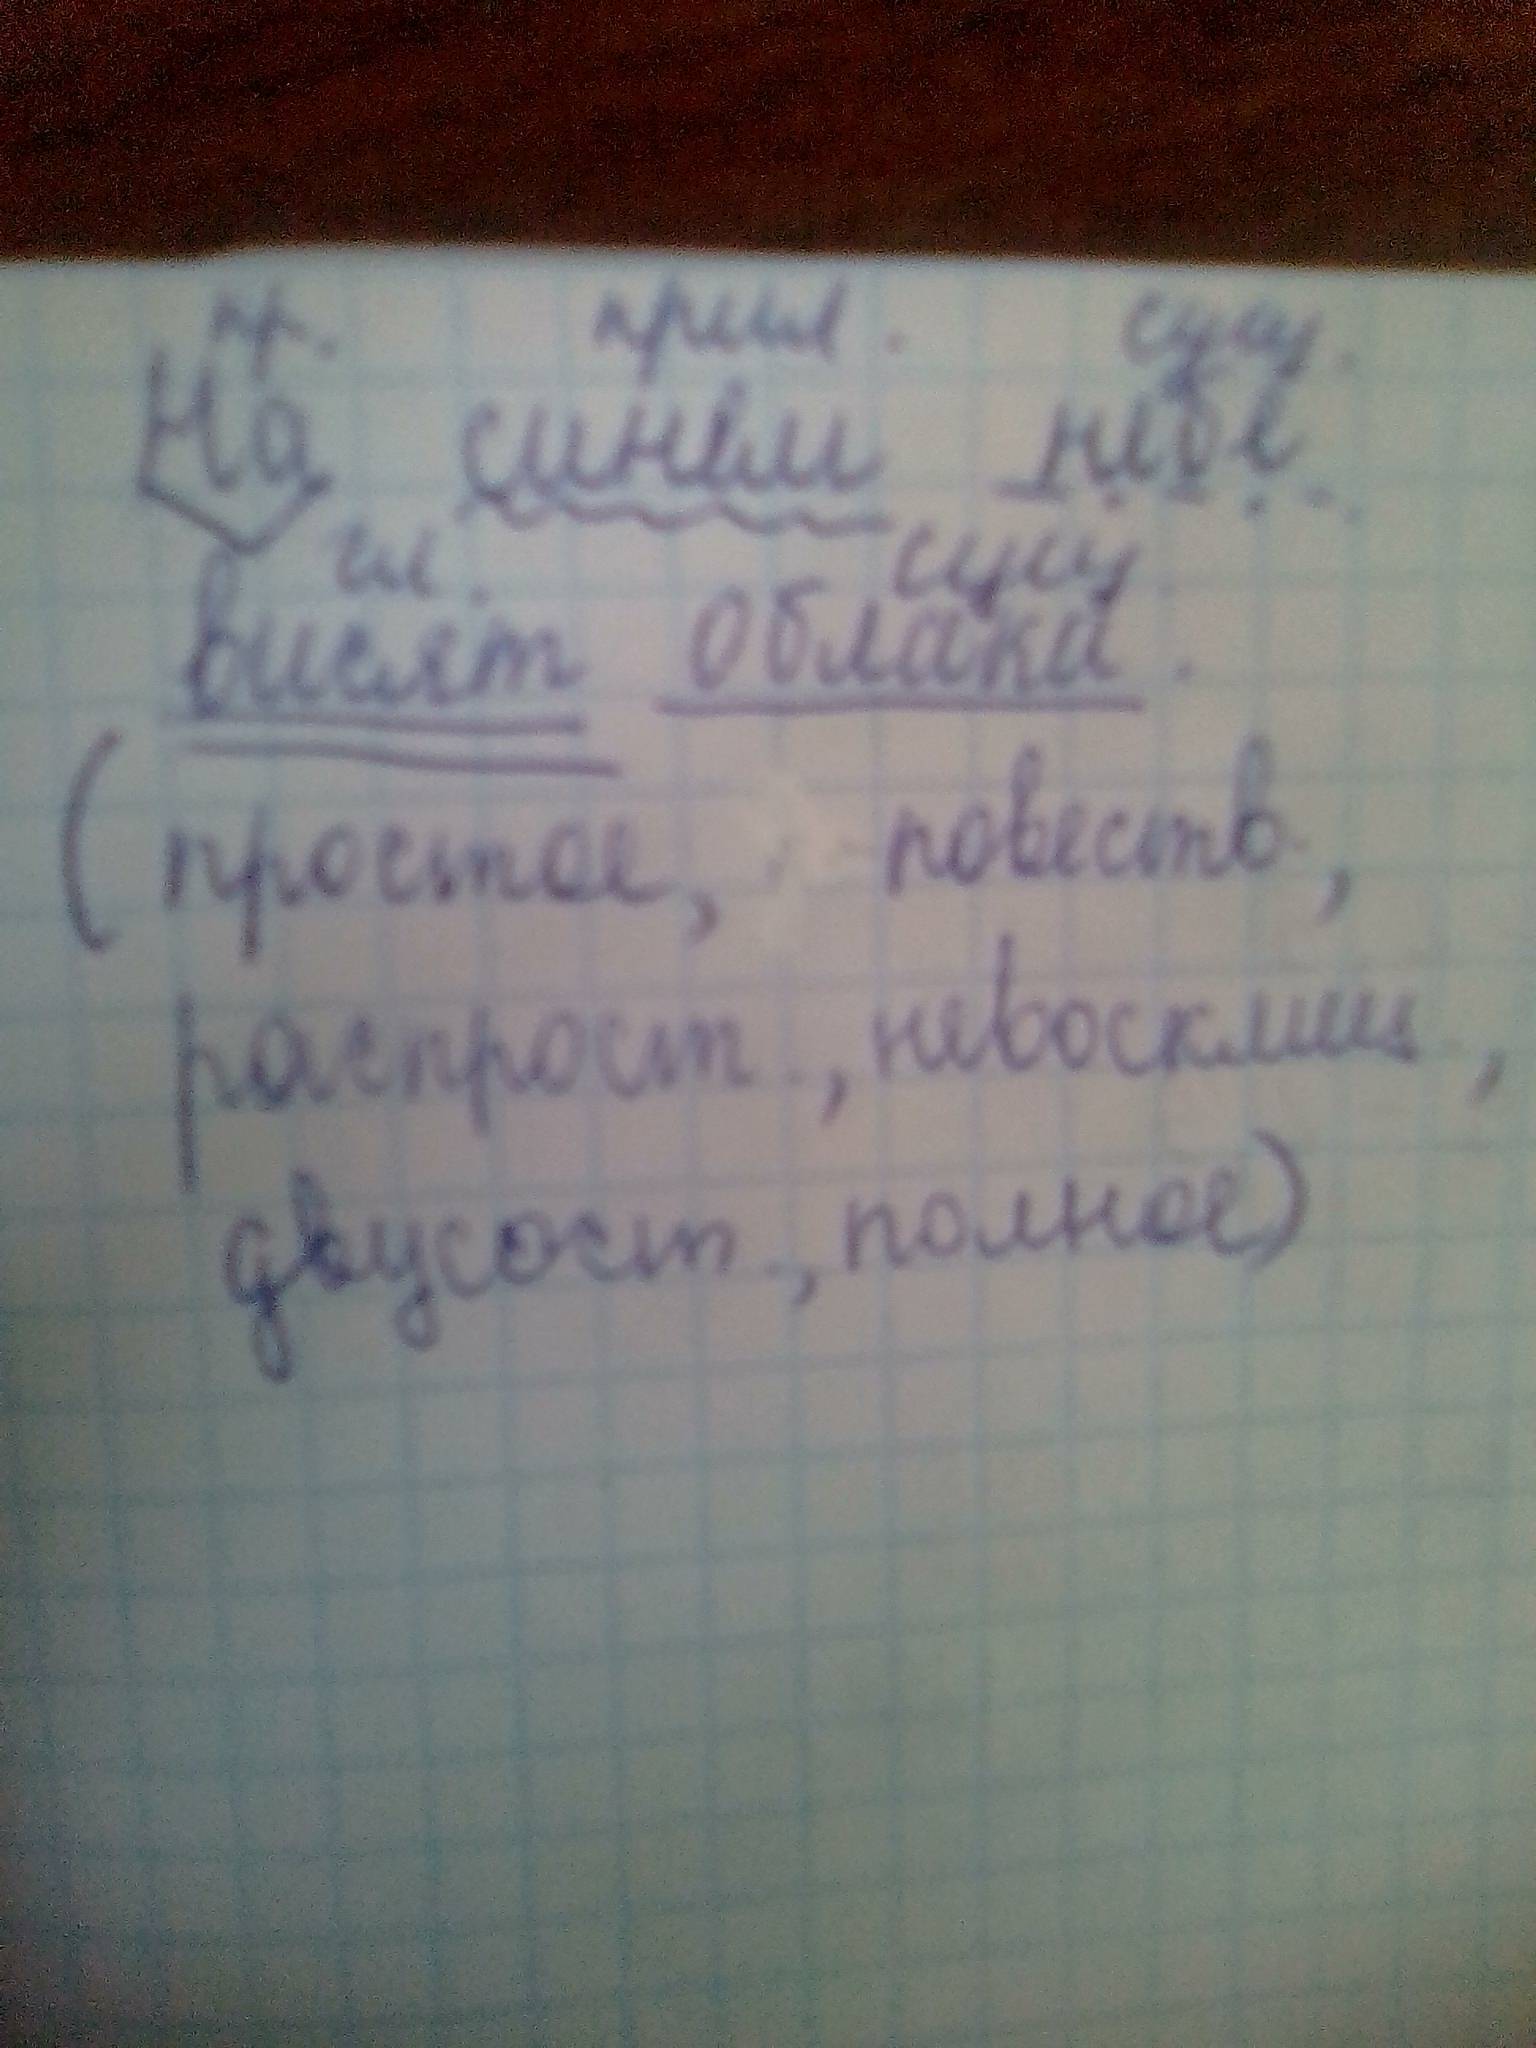 пр. прил. сущ.
На синем небе
гл. сущ.
висят облака.
(простое, повеств.,
распрост., невосклиц.,
двусост., полное)